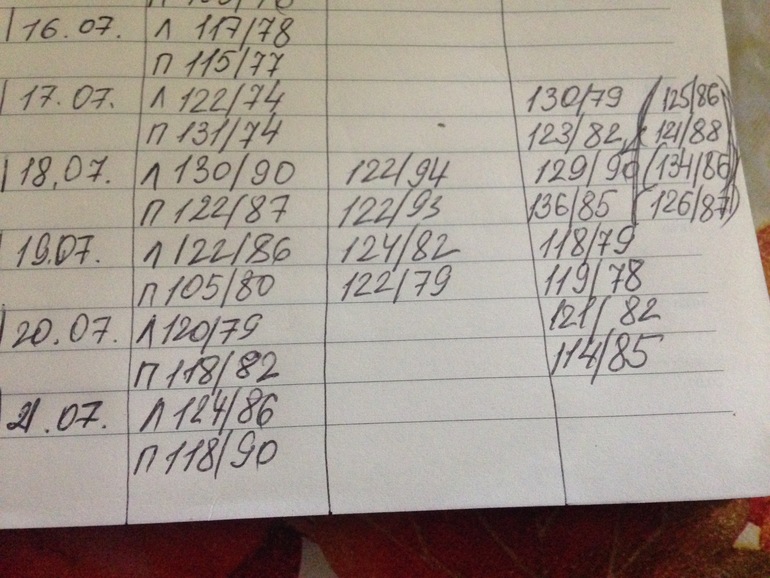 16.07. Л 117/78
П 115/77
17.07. Л 122/74 130/79 (125/86
П 131/74 123/82 121/88)
18.07. Л 130/90 122/94 129/90 (134/86)
П 122/87 122/93 136/85 (126/87)
19.07. Л 122/86 124/82 118/79
П 105/80 122/79 119/78
20.07. Л 120/79 121/82
П 118/82 114/85
21.07. Л 124/86
П 118/90